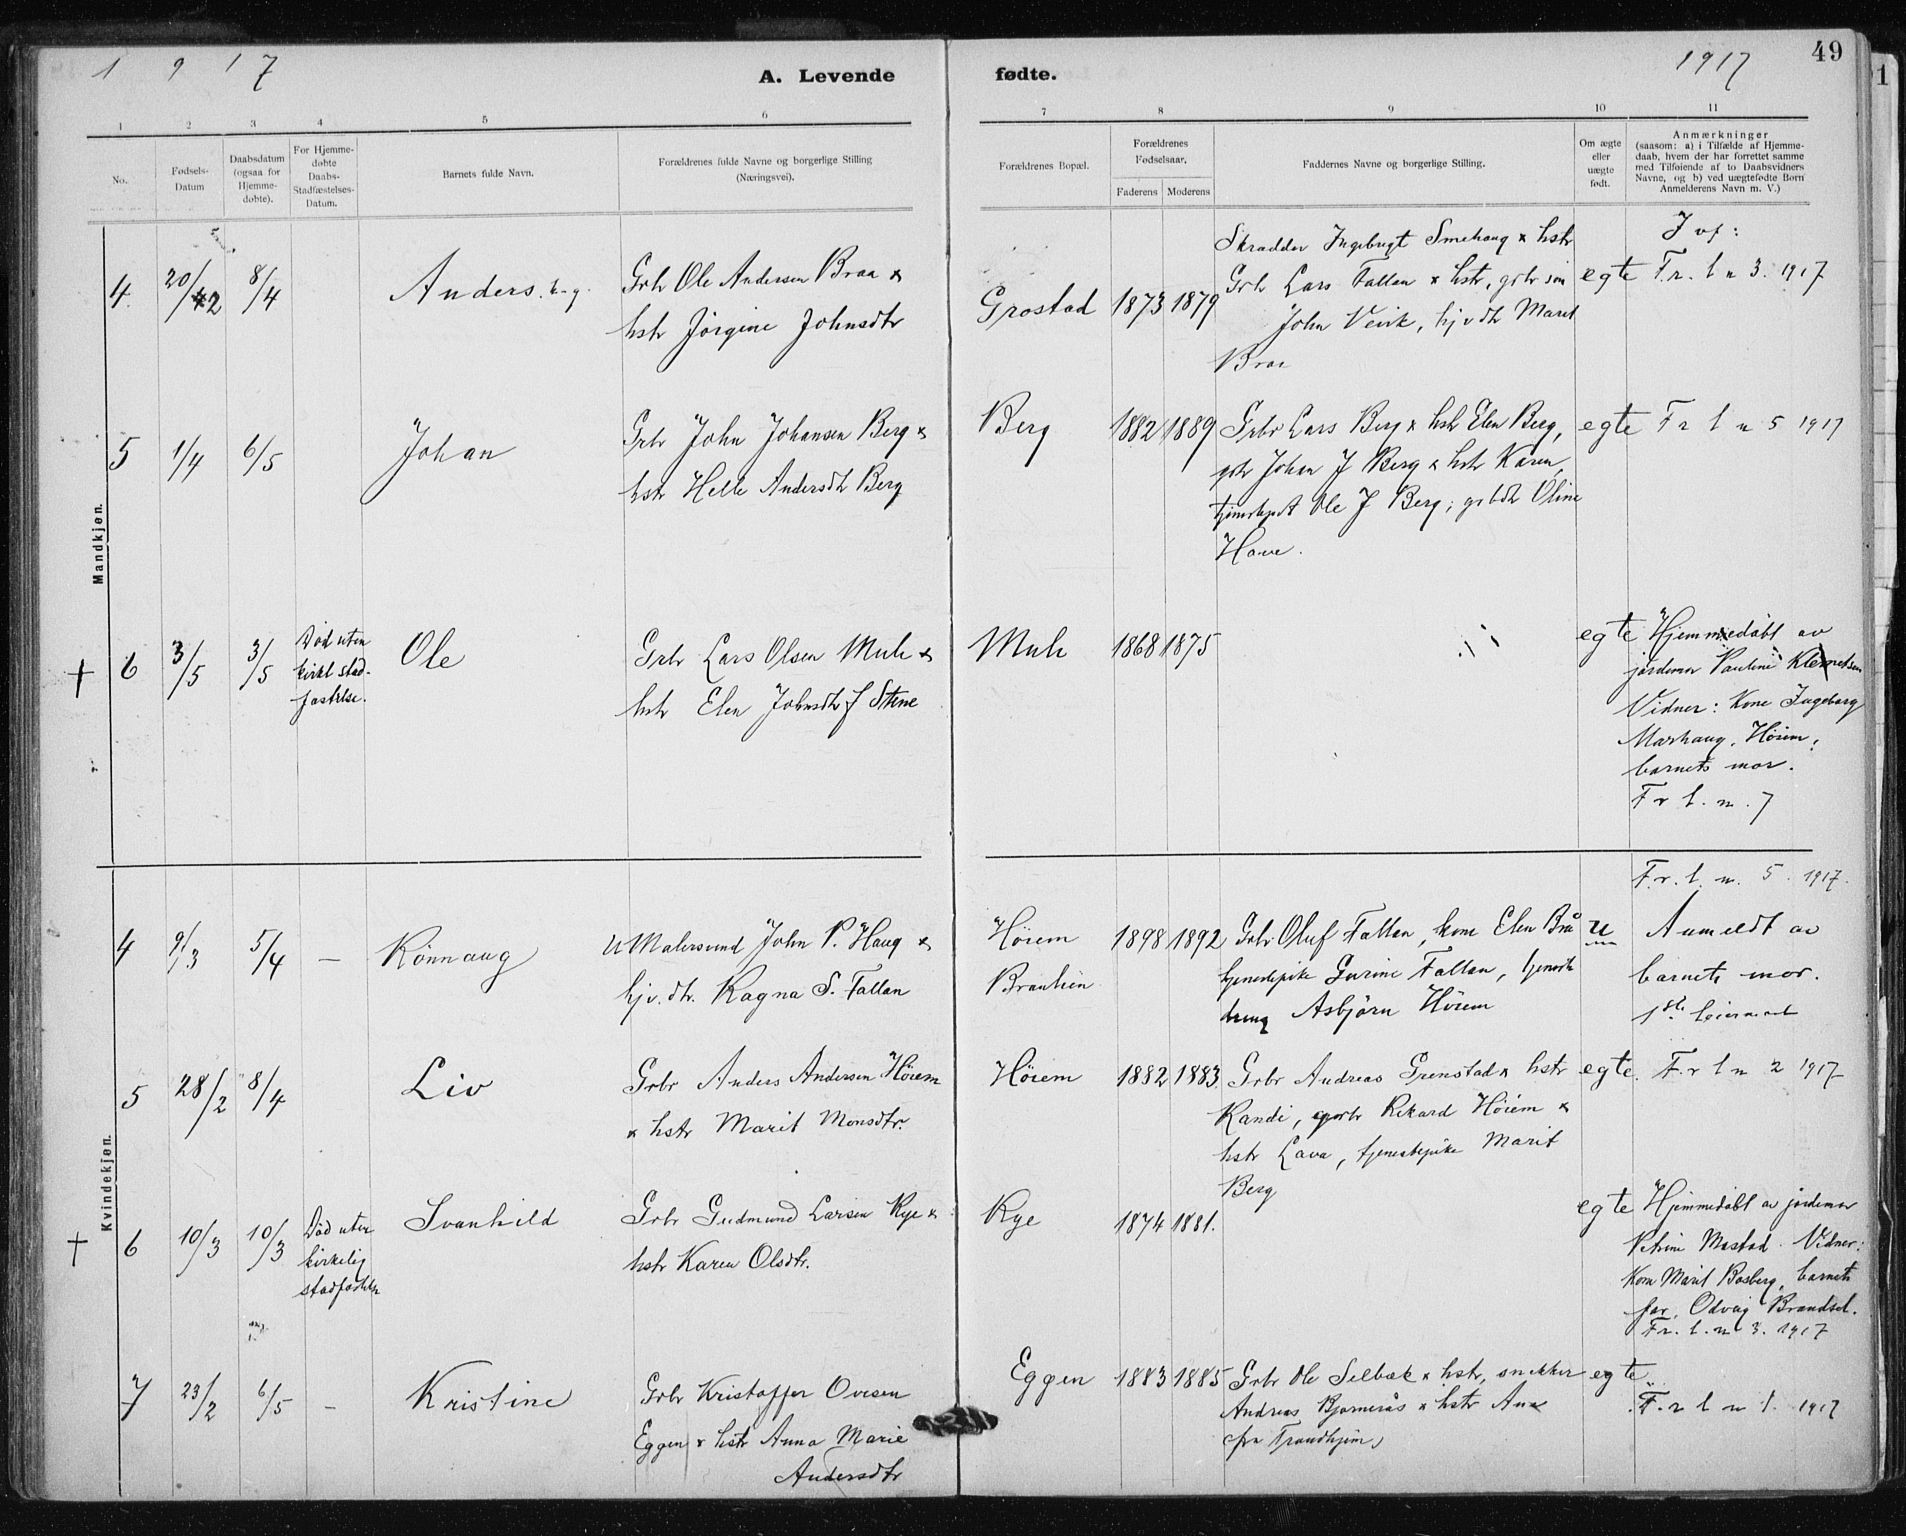 1917
A. Levende
fødte.
1917
49
1 2 3 4 5 6 7 8 9 10 11
No.
Fødsels-
Datum
Daabsdatum
(ogsaa for
Hjemme-
døbte).
For Hjemme-
døbte
Daabs-
Stadfæstelses-
Datum.
Barnets fulde Navn.
Forældrenes fulde Navne og borgerlige Stilling
(Næringsvei).
Forældrenes Bopæl.
Forældrenes
Fødselsaar.
Faderens Moderens
Faddernes Navne og borgerlige Stilling.
Om ægte
eller
uægte
født.
Anmærkninger
(saasom: a) i Tilfælde af Hjemme-
daab, hvem der har forrettet samme
med Tilføiende af to Daabsvidners
Navne, og b) ved uægtefødte Børn
Anmelderens Navn m. V.)
Mandkjøn.
4 20/2 8/4
Anders
Grbr Ole Andersen Braa &
hstr Jörgine Johnsdtr
Grostad 1873 1879
Skradder Ingebrigt Smehaug & hstr
Grbr Lars Fallan & hstr, grbr søn
John Veivk, hjv dtr Marit
Braa
egte
Fr. l n 3. 1917
5 1/4 6/5
Johan
Grbr John Johansen Berg &
hstr Helle Andersdtr Berg
Berg 1882 1889
Grbr Lars Berg & hstr Elen Berg,
grbr Johan J Berg & hstr Karen,
Ole J Berg; Oline
Have.
egte
Fr l n 5 1917
† 6 3/5 3/5
Død uten
kirkl stad-
fæstelse.
Ole
Grbr Lars Olsen Muli &
hstr Elen Johnsdtr f Stene
Muli 1868 1875
egte
Hjemmedøbt av
jordemor Pauline Klemetsen
Vidner: Kone Ingeborg
Marhaug, Høiem,
barnets mor.
Fr l. n. 7
Kvindekjøn.
Fr. l. n. 5. 1917.
4 9/3 5/4 –
Rönnaug
U Malersvend John P. Haug &
hjv. dtr. Ragna S. Fallan
Høiem
Braulien
1898 1892
Grbr Oluf Fallan, kone Elen Brå
tjenestepike Gurine Fallan,
dreng Asbjørn Høiem
u
Anmeldt av
barnets mor.
1ste leiermaal
5 28/2 8/4
Liv
Grbr Anders Andersen Høiem
& hstr Marit Monsdtr.
Høiem 1882 1883
Grbr Andreas Grenstad & hstr
Randi, grbr Rikard Høiem &
hstr Lava, tjenestepike Marit
Berg
egte.
F. r l n 2 1917
† 6 10/3 10/3
Død uten
kirkelig
stadfæstelse
Svanhild
Grbr Gudmund Larsen Rye &
hstr Karen Olsdtr.
Rye 1874 1881.
egte
Hjemmedøbt av jordemor
Petrine Mostad. Vidner:
Kone Marit Bosberg, barnets
far, Odveig Brandsel.
Fr. l. n 3. 1917
7 23/2 6/5 –
Kristine
Grbr Kristoffer Ovesen
Eggen & hstr Anna Marie
Andersdtr
Eggen 1883 1885
Grbr Ole Selbæk & hstr, snekker
Andreas Bjørnerås & hstr Ana
fra Trondhjem,
egte
F. r l n 1. 1917